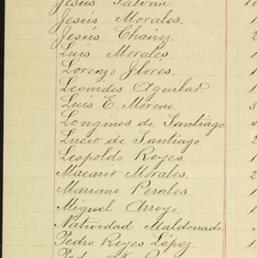 Jesús Galván
Jesús Morales.
Jesús Cháirez.
Luis Morales.
Lorenzo Flores.
Leonides Aguilar
Luis E. Moreno
Longinos de Santiago
Lucio de Santiago
Leopoldo Reyes.
Macario Morales.
Mariano Perales
Miguel Arroyo.
Natividad Maldonado
Pedro Reyes López.